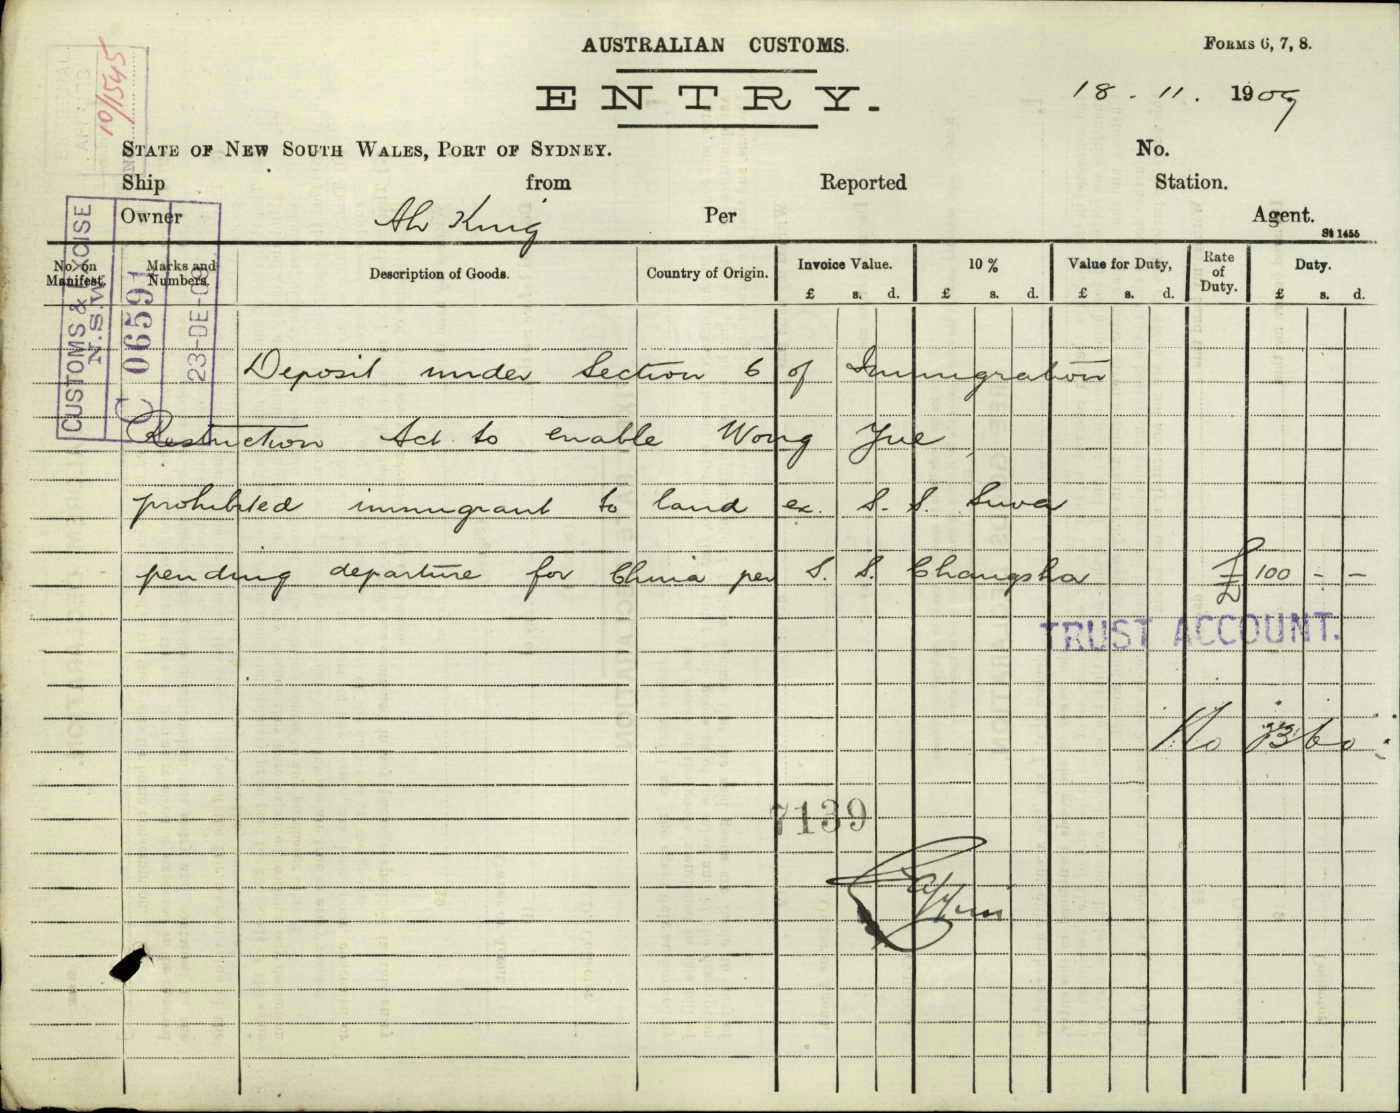 10/1545
AUSTRALIAN CUSTOMS.
FORMS 6, 7, 8.
ENTRY.
18 . 11 . 1909
STATE OF NEW SOUTH WALES, PORT OF SYDNEY.
No.
Ship from Reported Station.
Owner Ah King Per Agent.
St 1455
CUSTOMS & EXCISE
N.S.W.
C 06591
23-DE-09
No. on Manifest. Marks and Numbers. Description of Goods. Country of Origin. Invoice Value. 10 % Value for Duty, Rate of Duty. Duty.
£ s. d. £ s. d. £ s. d. £ s. d.
Deposit under Section 6 of Immigration
Restriction Act to enable Wong Yue,
prohibited immigrant to land ex. S. S. Suva
pending departure for China per S. S. Changsha £ 100 - -
TRUST ACCOUNT.
No
7139